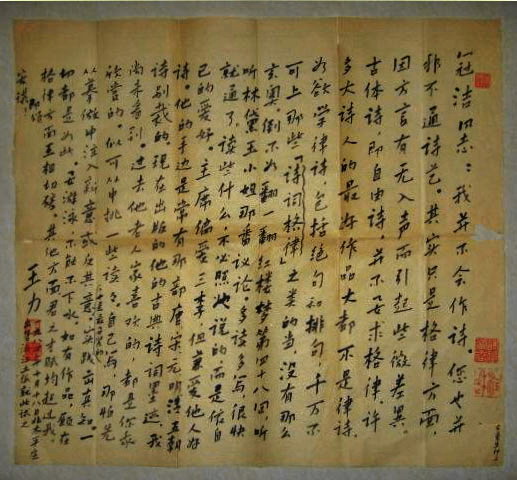 冠洁同志：我并不会作诗。您也并
非不通诗艺。其实只是格律方面，
因方言有无入声而引起些微差异。
古体诗，即自由诗，并不要求格律，许
多大诗人的最好作品大都不是律诗。
如欲学律诗，包括绝句和排句，千万不
可上那些「诗词格律」之类的当，没有那么
玄奥，倒不如翻一翻红楼梦第四十八回，听
听林黛玉小姐那番议论。多读多写，很快
就通了，读些什么，不必照她说的，而是依自
己的爱好。主席偏爱三李，但兼爱他人好
诗。他的手边是常有那部唐宋元明清五朝
诗别裁的。现在出版的他的古典诗词墨迹，我
尚未看到。过去他老人家喜欢的，都是你最
欣赏的。似可从中挑一些读读。自己写，那怕先
从摹仿中注入新意或反其意。实践出真知，一
切都是如此。要游泳，不能不下水。如有作品，愿在
格律方面互相切磋。其他方面君之才赋均超过我。
即颂
安祺！
王力